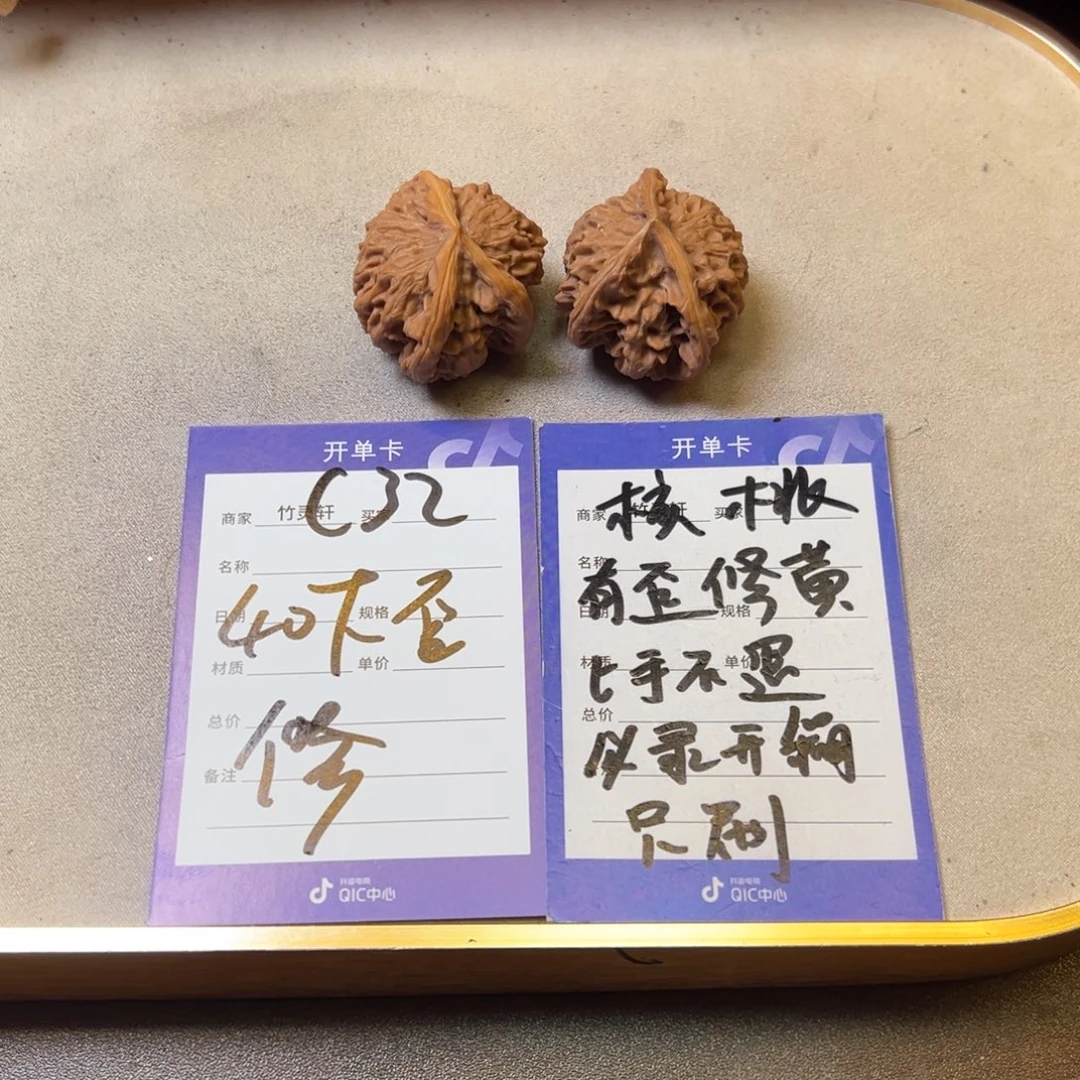 开单卡
C32
商家 竹灵轩 买家
名称
40下歪
日期 规格
材质 单价
总价
修
备注
抖音电商
QIC中心
开单卡
核桃
商家 竹灵轩 买家
名称
有歪修黄
日期 规格
上手不退
材质 单价
总价
必录开箱
只刷
抖音电商
QIC中心